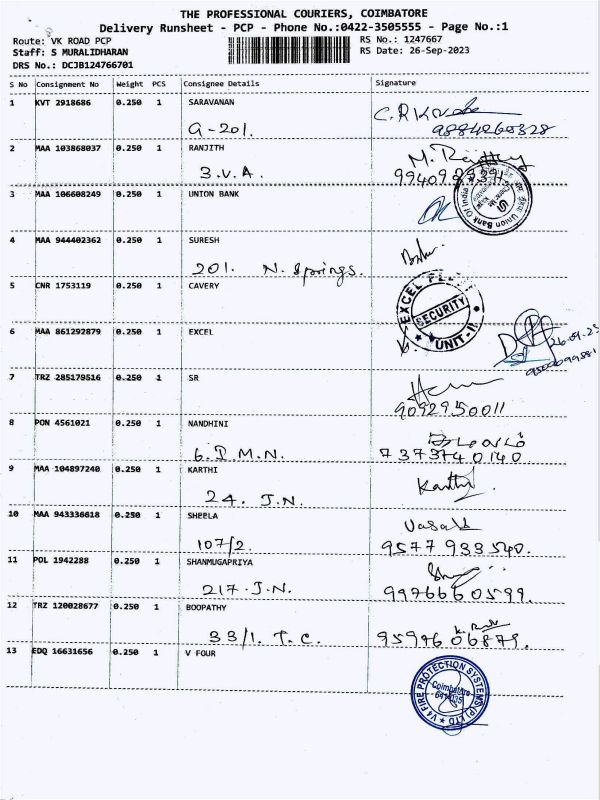 THE PROFESSIONAL COURIERS, COIMBATORE
Delivery Runsheet - PCP - Phone No.:0422-3505555 - Page No.:1
Route: VK ROAD PCP
RS No.: 1247667
Staff: S MURALIDHARAN
RS Date: 26-Sep-2023
DRS No.: DCJB124766701
S No Consignment No Weight PCS Consignee Details Signature
1 KVT 2918686 0.250 1 SARAVANAN
G-201.
9884260328
2 MAA 103868037 0.250 1 RANJITH
3.V.A.
3 MAA 106608249 0.250 1 UNION BANK
Union Bank Of India
4 MAA 944402362 0.250 1 SURESH
201. N. Springs.
5 CNR 1753119 0.250 1 CAVERY
EXCEL
SECURITY
UNIT-II
6 MAA 861292879 0.250 1 EXCEL
26.09.23
7 TRZ 285179516 0.250 1 SR
9092950011
8 PON 4561021 0.250 1 NANDHINI
6. D M.N.
7373740140
9 MAA 104897240 0.250 1 KARTHI
24. J.N.
Karthi
10 MAA 943336618 0.250 1 SHEELA
107/2.
9577933540.
11 POL 1942288 0.250 1 SHANMUGAPRIYA
217.J.N.
9976660599.
12 TRZ 120028677 0.250 1 BOOPATHY
33/1. T.C.
9597606879.
13 EDQ 16631656 0.250 1 V FOUR
V4 FIRE PROTECTION SYSTEMS (P) LTD
Coimbatore